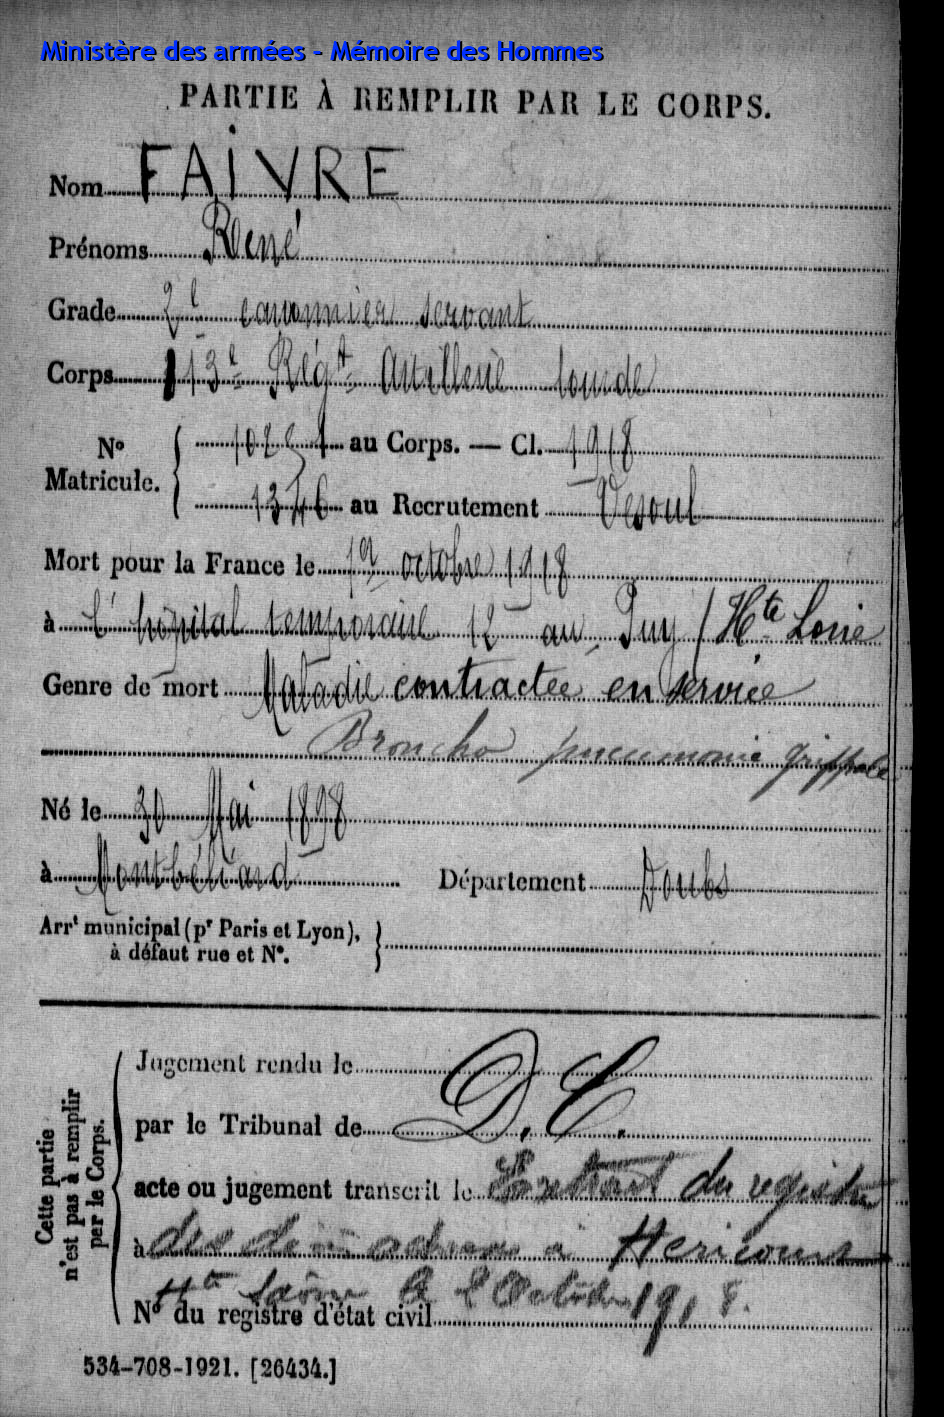 Ministère des armées - Mémoire des Hommes
PARTIE À REMPLIR PAR LE CORPS.
Nom FAIVRE
Prénoms René
Grade 2e canonnier servant
Corps 113e Régt Artillerie lourde
No Matricule. { 10251 au Corps. — Cl. 1918
1346 au Recrutement Vesoul
Mort pour la France le 1er octobre 1918
à l'hôpital temporaire 12 au Puy (Hte Loire
Genre de mort Maladie contractée en service
Broncho pneumonie grippale
Né le 30 Mai 1898
à Montbéliard Département Doubs
Arrt municipal (pr Paris et Lyon),
à défaut rue et No. }
Cette partie
n'est pas à remplir
par le Corps.
Jugement rendu le
par le Tribunal de D.C.
acte ou jugement transcrit le Extrait du registre
à des décès adressé à Hericourt
Hte Saône le 2 Octobre 1918.
No du registre d'état civil
534-708-1921. [26434.]